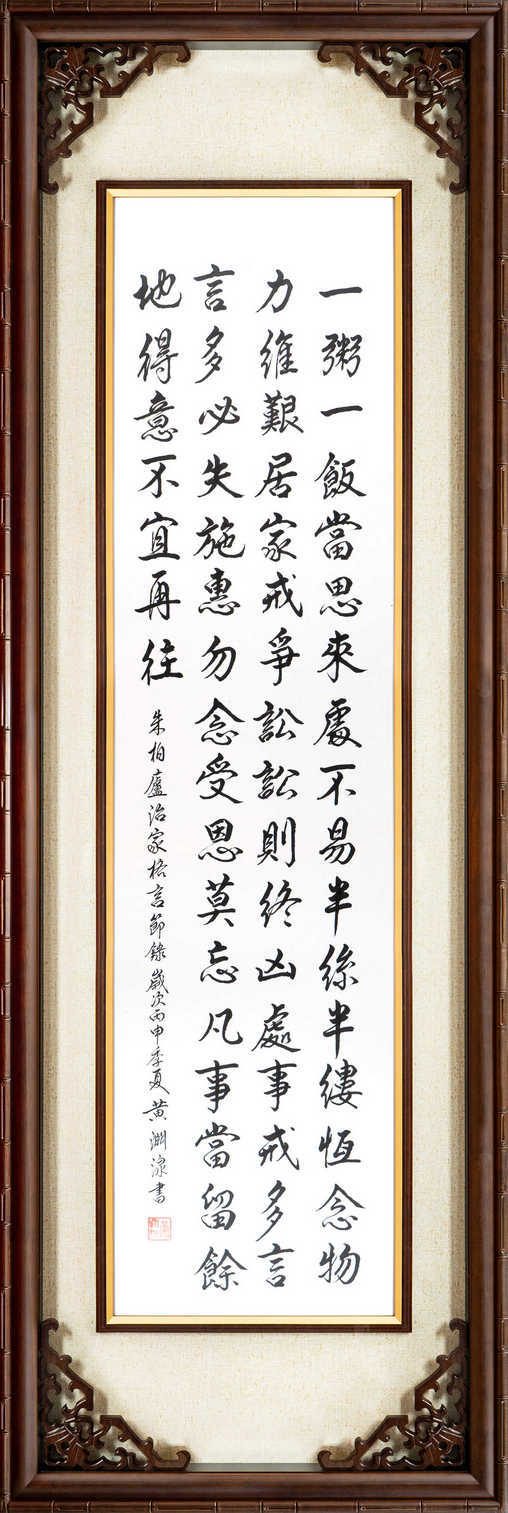 一粥一飯當思來處不易半絲半縷恆念物
力維艱居家戒爭訟訟則終凶處事戒多言
言多必失施惠勿念受恩莫忘凡事當留餘
地得意不宜再往
朱柏廬治家格言節錄歲次丙申季夏黃淵湶書